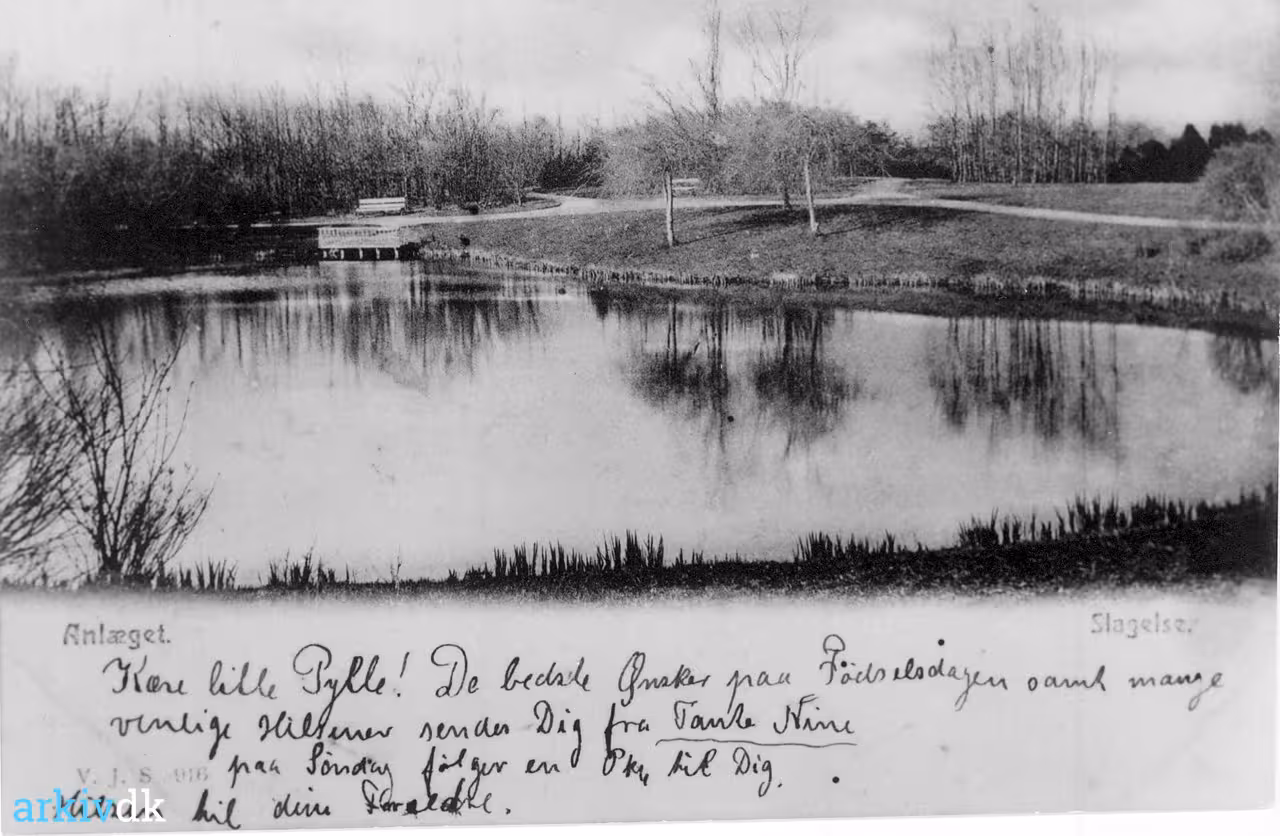 Anlæget.
Slagelse.
Kære lille Pylle! De bedste Ønsker paa Fødselsdagen samt mange
venlige Hilsener sendes Dig fra Tante Nine
paa Søndag følger en Pk, til Dig.
V. J. S. 916
Hilsen til dine Forældre.
arkiv.dk